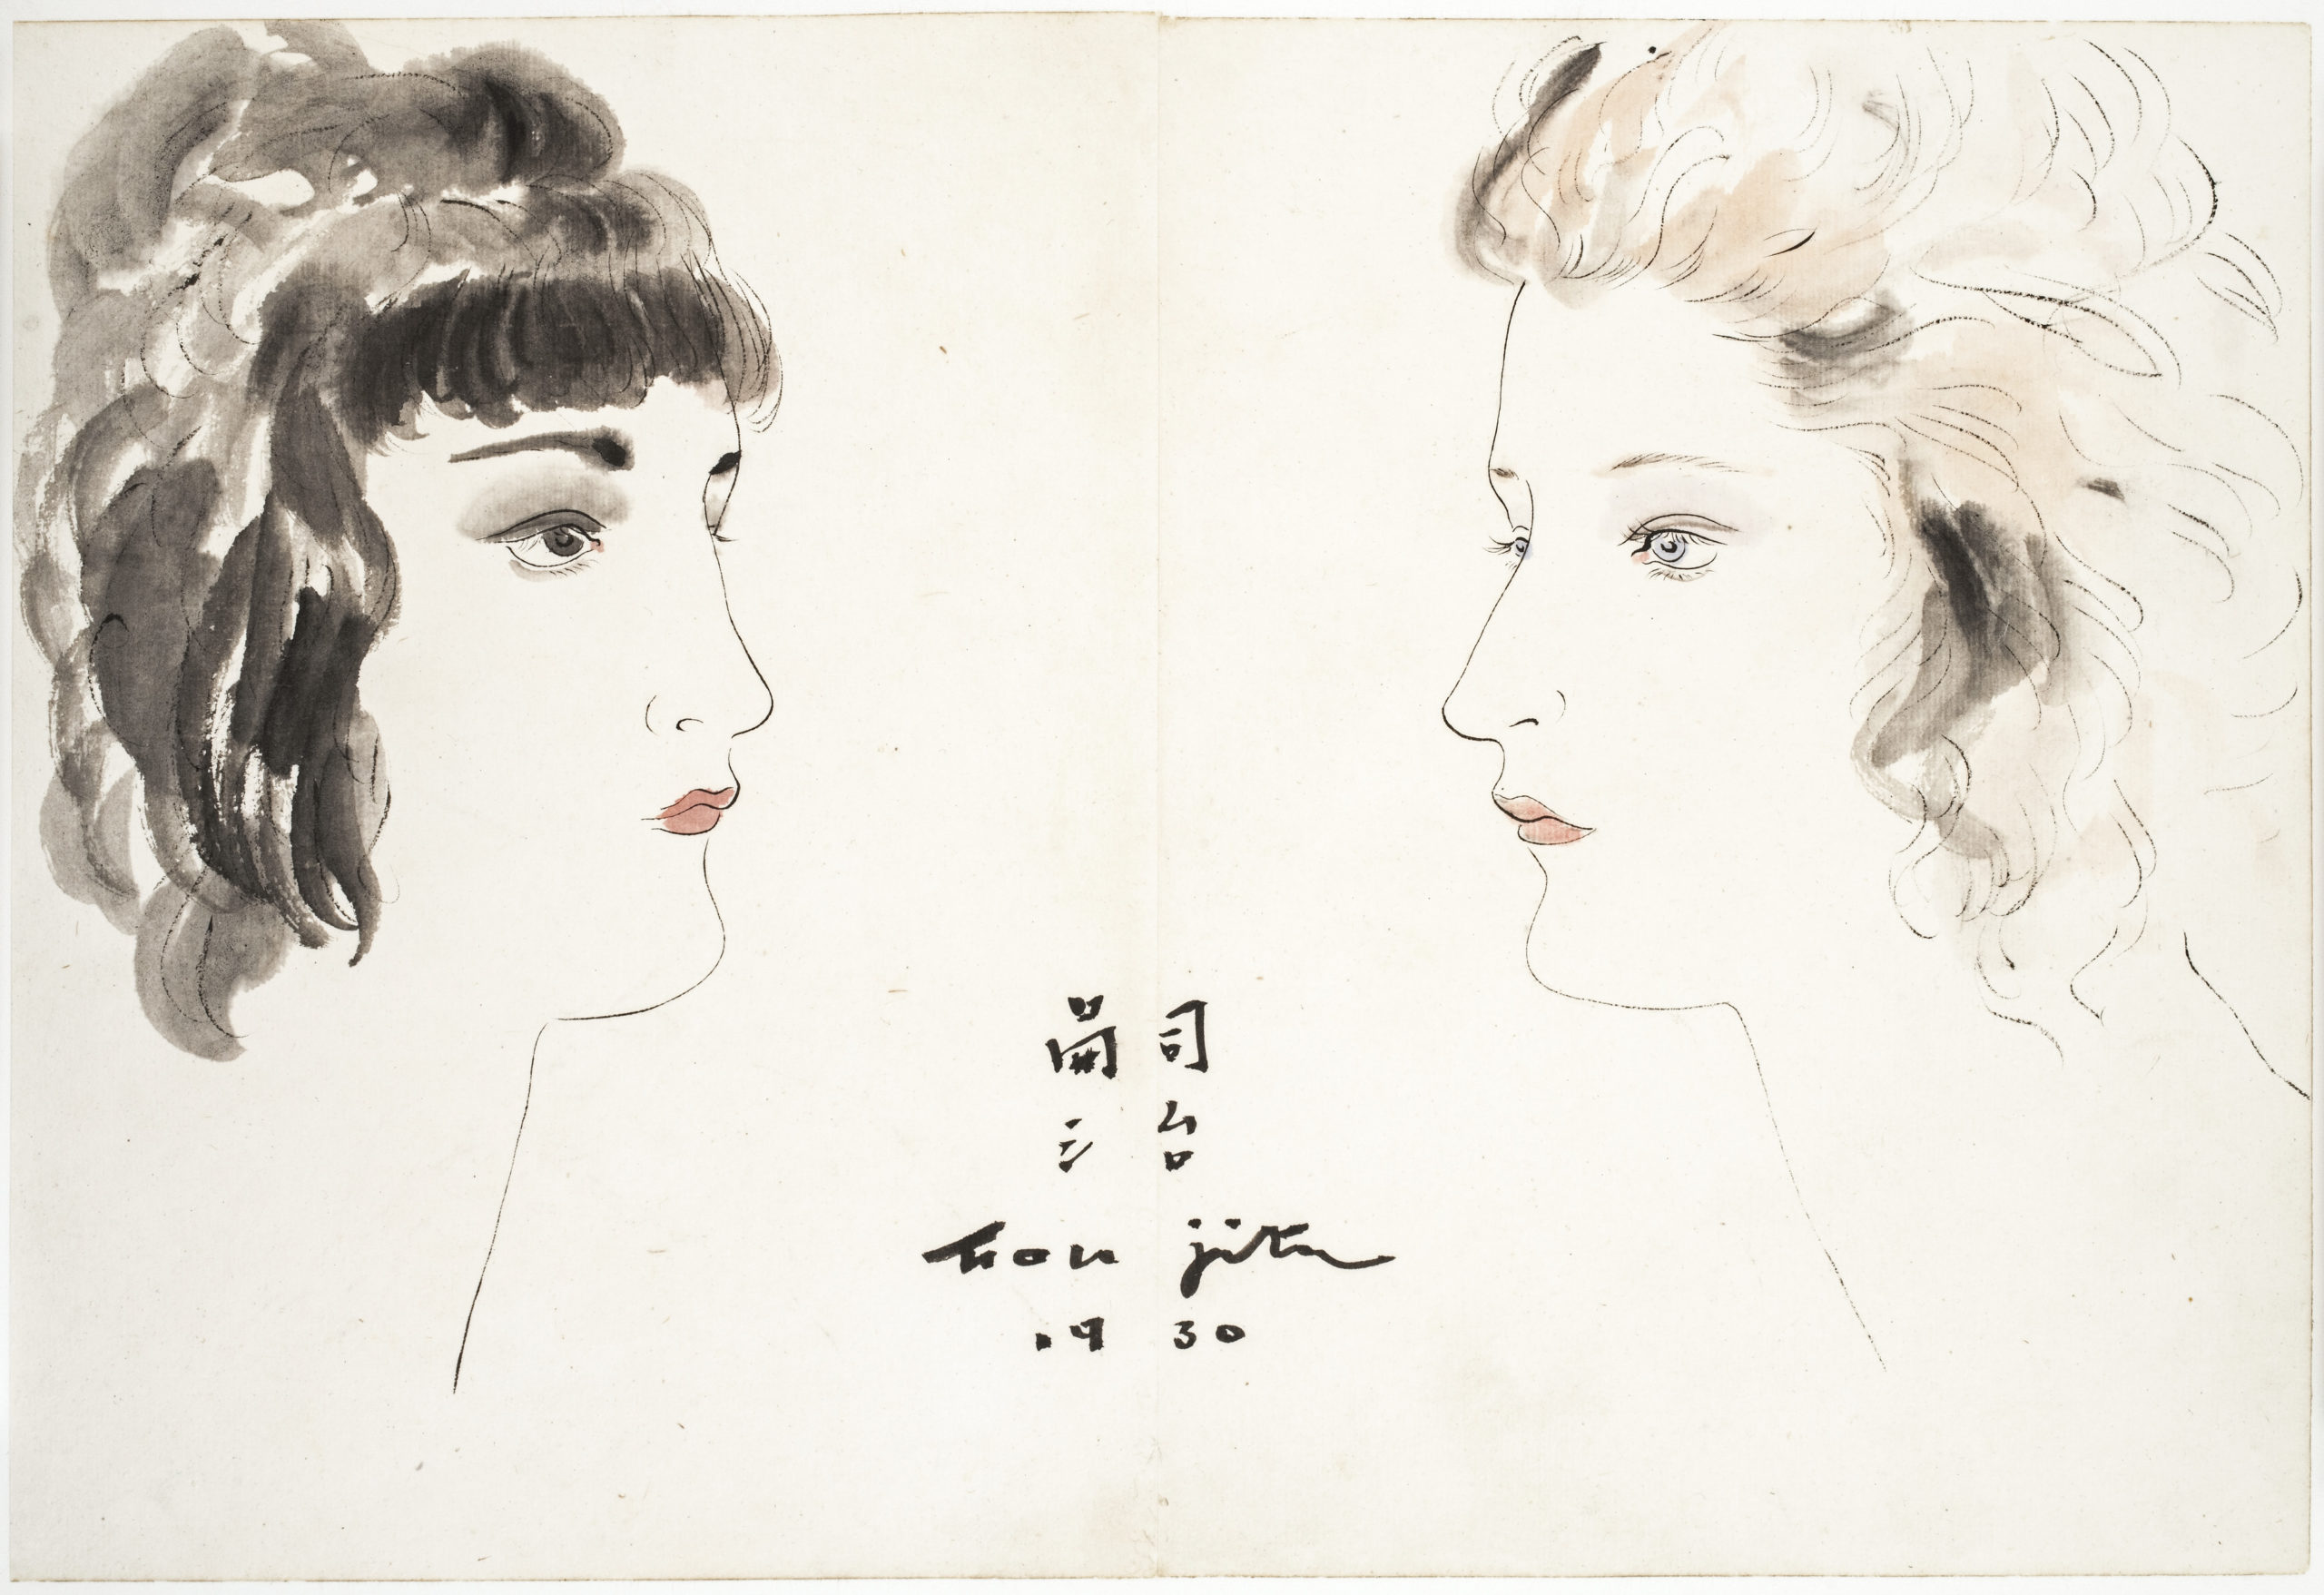 嗣治
Foujita
1930